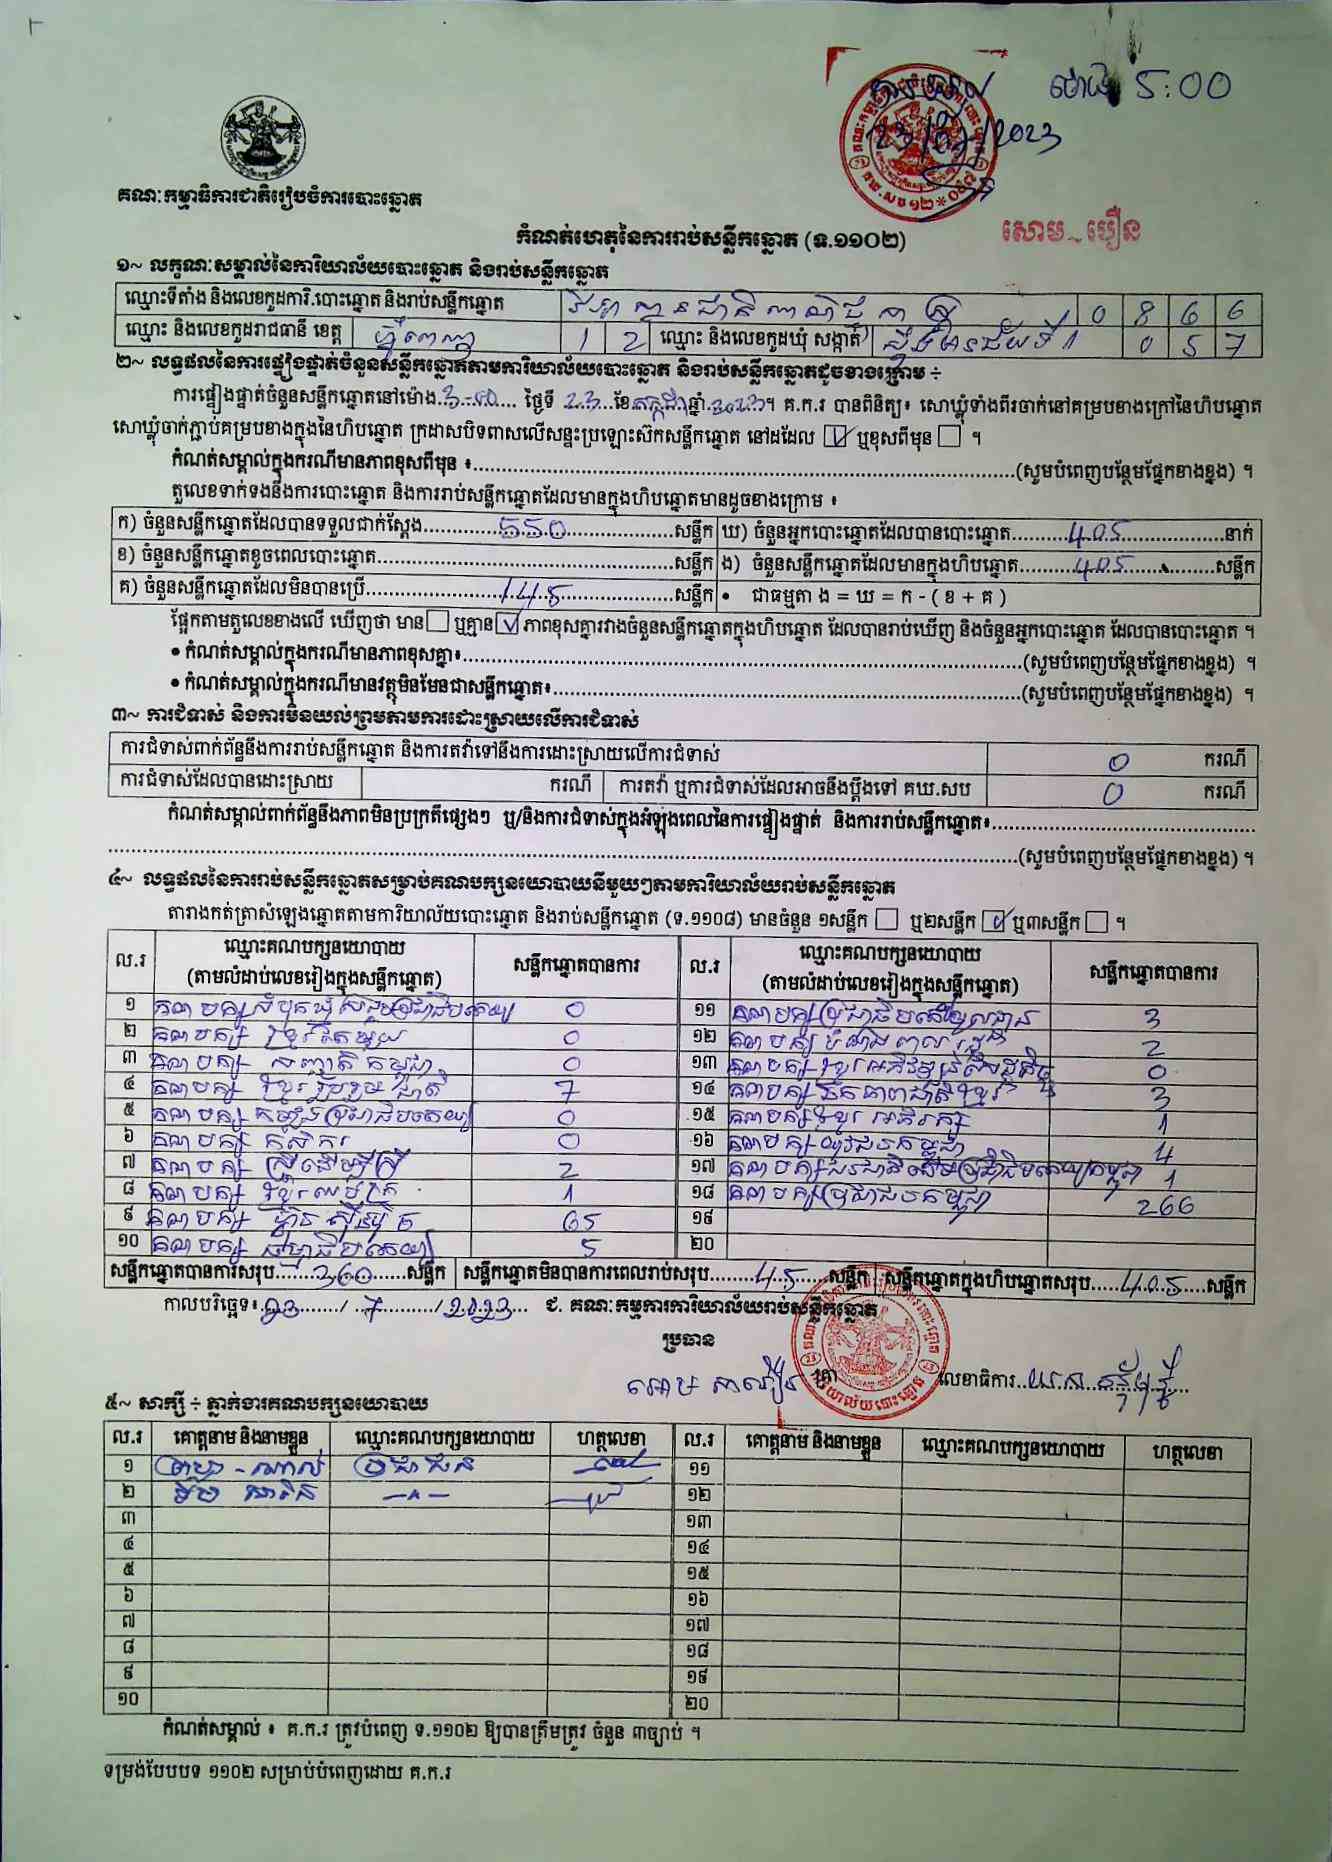 ម៉ោង 5:00
23/07/2023
គណៈកម្មាធិការជាតិរៀបចំការបោះឆ្នោត
សោម បឿន
កំណត់ហេតុនៃការរាប់សន្លឹកឆ្នោត (ទ.១១០២)
១~ លក្ខណៈសម្គាល់នៃការិយាល័យបោះឆ្នោត និងរាប់សន្លឹកឆ្នោត
ឈ្មោះទីតាំង និងលេខកូដការិ.បោះឆ្នោត និងរាប់សន្លឹកឆ្នោត 0 8 6 6
ឈ្មោះ និងលេខកូដរាជធានី ខេត្ត ភ្នំពេញ 1 2 ឈ្មោះ និងលេខកូដឃុំ សង្កាត់ ស្ទឹងមានជ័យទី1 0 5 7
២~ លទ្ធផលនៃការផ្ទៀងផ្ទាត់ចំនួនសន្លឹកឆ្នោតតាមការិយាល័យបោះឆ្នោត និងរាប់សន្លឹកឆ្នោតដូចខាងក្រោម ÷
ការផ្ទៀងផ្ទាត់ចំនួនសន្លឹកឆ្នោតនៅម៉ោង 3-00 ថ្ងៃទី 23 ខែ កក្កដា ឆ្នាំ 2023 ។ គ.ក.រ បានពិនិត្យ៖ សោឃ្លុំទាំងពីរចាក់នៅគម្របខាងក្រៅនៃហិបឆ្នោត
សោឃ្លុំចាក់ភ្ជាប់គម្របខាងក្នុងនៃហិបឆ្នោត ក្រដាសបិទពាសលើសន្ទះប្រឡោះស៊កសន្លឹកឆ្នោត នៅដដែល ☑ ឬខុសពីមុន ☐ ។
កំណត់សម្គាល់ក្នុងករណីមានភាពខុសពីមុន ៖ (សូមបំពេញបន្ថែមផ្នែកខាងខ្នង) ។
តួលេខទាក់ទងនឹងការបោះឆ្នោត និងការរាប់សន្លឹកឆ្នោតដែលមានក្នុងហិបឆ្នោតមានដូចខាងក្រោម ៖
ក) ចំនួនសន្លឹកឆ្នោតដែលបានទទួលជាក់ស្តែង 550 សន្លឹក ឃ) ចំនួនអ្នកបោះឆ្នោតដែលបានបោះឆ្នោត 405 នាក់
ខ) ចំនួនសន្លឹកឆ្នោតខូចពេលបោះឆ្នោត សន្លឹក ង) ចំនួនសន្លឹកឆ្នោតដែលមានក្នុងហិបឆ្នោត 405 សន្លឹក
គ) ចំនួនសន្លឹកឆ្នោតដែលមិនបានប្រើ 145 សន្លឹក • ជាធម្មតា ង = ឃ = ក - ( ខ + គ )
ផ្អែកតាមតួលេខខាងលើ ឃើញថា មាន ☐ ឬគ្មាន ☑ ភាពខុសគ្នារវាងចំនួនសន្លឹកឆ្នោតក្នុងហិបឆ្នោត ដែលបានរាប់ឃើញ និងចំនួនអ្នកបោះឆ្នោត ដែលបានបោះឆ្នោត ។
• កំណត់សម្គាល់ក្នុងករណីមានភាពខុសគ្នា៖ (សូមបំពេញបន្ថែមផ្នែកខាងខ្នង) ។
• កំណត់សម្គាល់ក្នុងករណីមានវត្ថុមិនមែនជាសន្លឹកឆ្នោត៖ (សូមបំពេញបន្ថែមផ្នែកខាងខ្នង) ។
៣~ ការជំទាស់ និងការមិនយល់ព្រមតាមការដោះស្រាយលើការជំទាស់
ការជំទាស់ពាក់ព័ន្ធនឹងការរាប់សន្លឹកឆ្នោត និងការតវ៉ាទៅនឹងការដោះស្រាយលើការជំទាស់ 0 ករណី
ការជំទាស់ដែលបានដោះស្រាយ ករណី ការតវ៉ា ឬការជំទាស់ដែលអាចនឹងប្តឹងទៅ គឃ.សប 0 ករណី
កំណត់សម្គាល់ពាក់ព័ន្ធនឹងភាពមិនប្រក្រតីផ្សេងៗ ឬ/និងការជំទាស់ក្នុងអំឡុងពេលនៃការផ្ទៀងផ្ទាត់ និងការរាប់សន្លឹកឆ្នោត៖
(សូមបំពេញបន្ថែមផ្នែកខាងខ្នង) ។
៤~ លទ្ធផលនៃការរាប់សន្លឹកឆ្នោតសម្រាប់គណបក្សនយោបាយនីមួយៗតាមការិយាល័យរាប់សន្លឹកឆ្នោត
តារាងកត់ត្រាសំឡេងឆ្នោតតាមការិយាល័យបោះឆ្នោត និងរាប់សន្លឹកឆ្នោត (ទ.១១០៨) មានចំនួន ១សន្លឹក ☐ ឬ២សន្លឹក ☑ ឬ៣សន្លឹក ☐ ។
ល.រ ឈ្មោះគណបក្សនយោបាយ (តាមលំដាប់លេខរៀងក្នុងសន្លឹកឆ្នោត) សន្លឹកឆ្នោតបានការ ល.រ ឈ្មោះគណបក្សនយោបាយ (តាមលំដាប់លេខរៀងក្នុងសន្លឹកឆ្នោត) សន្លឹកឆ្នោតបានការ
១ គណបក្ស សំបុកឃ្មុំសង្គមប្រជាធិបតេយ្យ 0 ១១ គណបក្សប្រជាធិបតេយ្យមូលដ្ឋាន 3
២ គណបក្ស ខ្មែរតែមួយ 0 ១២ គណបក្ស 2
៣ គណបក្ស សញ្ជាតិកម្ពុជា 0 ១៣ គណបក្ស ខ្មែរអភិវឌ្ឍន៍សេដ្ឋកិច្ច 0
៤ គណបក្ស ខ្មែររួបរួមជាតិ 7 ១៤ គណបក្ស ឯកភាពជាតិខ្មែរ 3
៥ គណបក្ស កម្លាំងប្រជាធិបតេយ្យ 0 ១៥ គណបក្ស ខ្មែរអភិរក្ស 1
៦ គណបក្ស កសិករ 0 ១៦ គណបក្ស យុវជនកម្ពុជា 4
៧ គណបក្ស ស្ត្រីដើម្បីស្ត្រី 2 ១៧ គណបក្សជនជាតិដើមប្រជាធិបតេយ្យកម្ពុជា 1
៨ គណបក្ស ខ្មែរឈប់ក្រ 1 ១៨ គណបក្សប្រជាជនកម្ពុជា 266
៩ គណបក្ស ហ៊្វុនស៊ិនប៉ិច 65 ១៩
១០ គណបក្ស ធម្មាធិបតេយ្យ 5 ២០
សន្លឹកឆ្នោតបានការសរុប 360 សន្លឹក សន្លឹកឆ្នោតមិនបានការពេលរាប់សរុប 45 សន្លឹក សន្លឹកឆ្នោតក្នុងហិបឆ្នោតសរុប 405 សន្លឹក
កាលបរិច្ឆេទ៖ 23 / 7 / 2023 ជ. គណៈកម្មការការិយាល័យរាប់សន្លឹកឆ្នោត
ប្រធាន
លេខាធិការ
៥~ សាក្សី ÷ ភ្នាក់ងារគណបក្សនយោបាយ
ល.រ គោត្តនាម និងនាមខ្លួន ឈ្មោះគណបក្សនយោបាយ ហត្ថលេខា ល.រ គោត្តនាម និងនាមខ្លួន ឈ្មោះគណបក្សនយោបាយ ហត្ថលេខា
១ ប្រជាជន ១១
២ ១២
៣ ១៣
៤ ១៤
៥ ១៥
៦ ១៦
៧ ១៧
៨ ១៨
៩ ១៩
១០ ២០
កំណត់សម្គាល់ ៖ គ.ក.រ ត្រូវបំពេញ ទ.១១០២ ឱ្យបានត្រឹមត្រូវ ចំនួន ៣ច្បាប់ ។
ទម្រង់បែបបទ ១១០២ សម្រាប់បំពេញដោយ គ.ក.រ